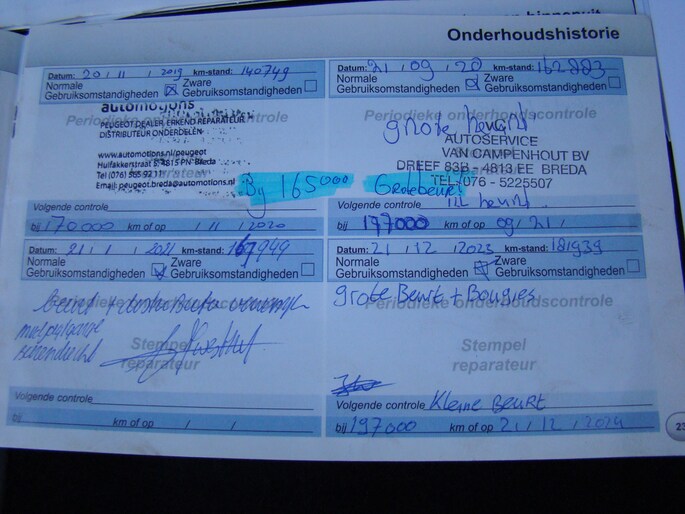 binnenuit
Onderhoudshistorie
Datum: 20 / 11 / 2019 km-stand: 140749
Normale Gebruiksomstandigheden Zware Gebruiksomstandigheden
Periodieke onderhoudscontrole
automotions
PEUGEOT DEALER ERKEND REPARATEUR
DISTRIBUTEUR ONDERDELEN
www.automotions.nl/peugeot
Huifakkerstraat 3, 4815 PN Breda
Tel (076) 565 92 11
Email: peugeot.breda@automotions.nl
Bij 165000 Grote beurt
Volgende controle
bij 170000 km of op / 11 / 2020
Datum: 21 / 09 / 20 km-stand: 162883
Normale Gebruiksomstandigheden Zware Gebruiksomstandigheden
Periodieke onderhoudscontrole
grote beurt
AUTOSERVICE
VAN CAMPENHOUT BV
DREEF 83B - 4813 EE BREDA
TEL. 076 - 5225507
Volgende controle beurt
bij 177000 km of op 09 / 21 /
Datum: 21 / 1 / 2021 km-stand: 167949
Normale Gebruiksomstandigheden Zware Gebruiksomstandigheden
Periodieke onderhoudscontrole
beurt +
Stempel
reparateur
Volgende controle
bij km of op / /
Datum: 21 / 12 / 2023 km-stand: 181939
Normale Gebruiksomstandigheden Zware Gebruiksomstandigheden
grote Beurt + Bougies
Periodieke onderhoudscontrole
Stempel
reparateur
Volgende controle Kleine Beurt
bij 197000 km of op 21 / 12 / 2024
23